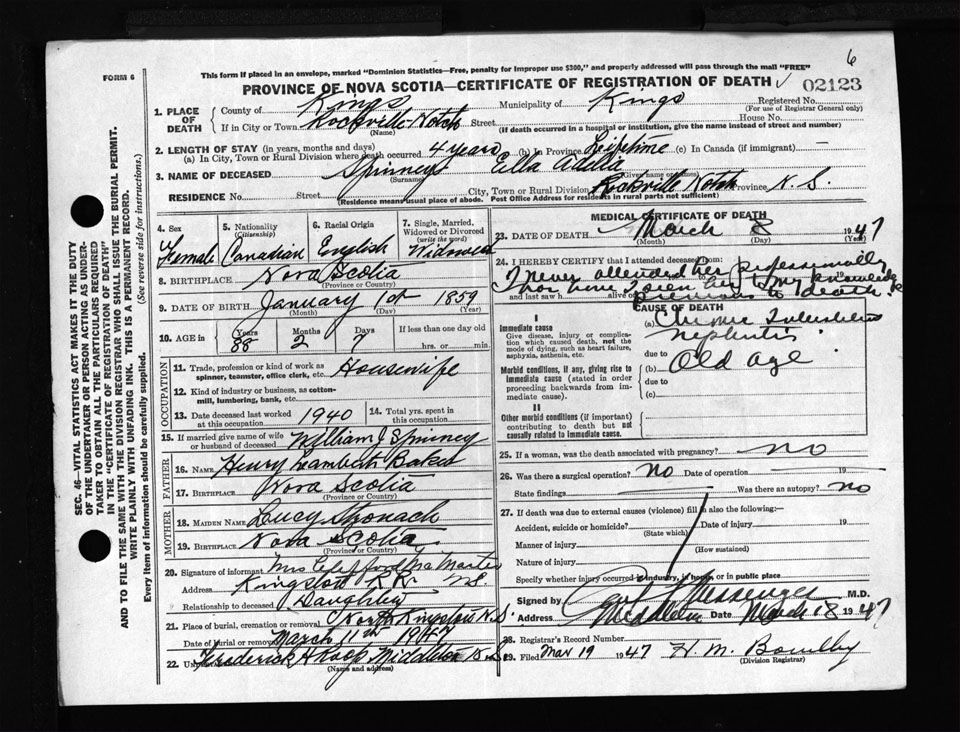 6
FORM 6
This form if placed in an envelope, marked "Dominion Statistics—Free, penalty for improper use $300," and properly addressed will pass through the mail "FREE"
PROVINCE OF NOVA SCOTIA—CERTIFICATE OF REGISTRATION OF DEATH
02123
SEC. 46—VITAL STATISTICS ACT MAKES IT THE DUTY
OF THE UNDERTAKER OR PERSON ACTING AS UNDER-
TAKER TO OBTAIN ALL THE PARTICULARS REQUIRED
IN THE "CERTIFICATE OF REGISTRATION OF DEATH"
AND TO FILE THE SAME WITH THE DIVISION REGISTRAR WHO SHALL ISSUE THE BURIAL PERMIT.
WRITE PLAINLY WITH UNFADING INK. THIS IS A PERMANENT RECORD.
Every item of information should be carefully supplied. (See reverse side for instructions.)
1. PLACE OF DEATH County of Kings Municipality of Kings Registered No.
(For use of Registrar General only)
If in City or Town Rockville Notch Street House No.
(Name) (If death occurred in a hospital or institution, give the name instead of street and number)
2. LENGTH OF STAY (in years, months and days)
(a) In City, Town or Rural Division where death occurred 4 years (b) In Province Lifetime (c) In Canada (if immigrant) —
3. NAME OF DECEASED Spinney Ella Adelia
(Surname) (Given name or names)
RESIDENCE No. Street City, Town or Rural Division Rockville Notch Province N.S.
(Residence means usual place of abode. Post Office Address for residents in rural parts not sufficient)
4. Sex 5. Nationality (Citizenship) 6. Racial Origin 7. Single, Married, Widowed or Divorced (write the word)
Female Canadian English Widowed
8. BIRTHPLACE Nova Scotia
(Province or Country)
9. DATE OF BIRTH January 1st 1859
(Month) (Day) (Year)
10. AGE in Years Months Days If less than one day old
88 2 7 hrs. or min.
OCCUPATION
11. Trade, profession or kind of work as spinner, teamster, office clerk, etc. Housewife
12. Kind of industry or business, as cotton-mill, lumbering, bank, etc.
13. Date deceased last worked at this occupation 1940 14. Total yrs. spent in this occupation
15. If married give name of wife or husband of deceased William J Spinney
FATHER
16. NAME Henry Lambert Baker
17. BIRTHPLACE Nova Scotia
(Province or Country)
MOTHER
18. MAIDEN NAME Lucy Stronach
19. BIRTHPLACE Nova Scotia
(Province or Country)
20. Signature of informant Mrs Clifford
Address Kingston RR N.S.
Relationship to deceased Daughter
21. Place of burial, cremation or removal North Kingston N.S.
Date of burial or removal March 11th 1947
22. Undertaker Frederick H Roop Middleton
(Name and address)
MEDICAL CERTIFICATE OF DEATH
23. DATE OF DEATH March 8 1947
(Month) (Day) (Year)
24. I HEREBY CERTIFY that I attended deceased from:
I never attended her professionally
nor have I seen her to my knowledge
and last saw h alive on
previous to death.
CAUSE OF DEATH
I
Immediate cause
Give disease, injury or complication which caused death, not the mode of dying, such as heart failure, asphyxia, asthenia, etc.
(a) Chronic
Nephritis
due to
Morbid conditions, if any, giving rise to immediate cause (stated in order proceeding backwards from immediate cause).
(b) Old age
due to
(c)
II
Other morbid conditions (if important) contributing to death but not causally related to immediate cause.
25. If a woman, was the death associated with pregnancy? no
26. Was there a surgical operation? no Date of operation 19
State findings Was there an autopsy? no
27. If death was due to external causes (violence) fill in also the following:—
Accident, suicide or homicide? Date of injury 19
(State which)
Manner of injury
(How sustained)
Nature of injury
Specify whether injury occurred in industry, in home, or in public place
Signed by Messenger M.D.
Address Middleton Date March 18 1947
28. Registrar's Record Number
29. Filed Mar 19 1947 H. M.
(Division Registrar)